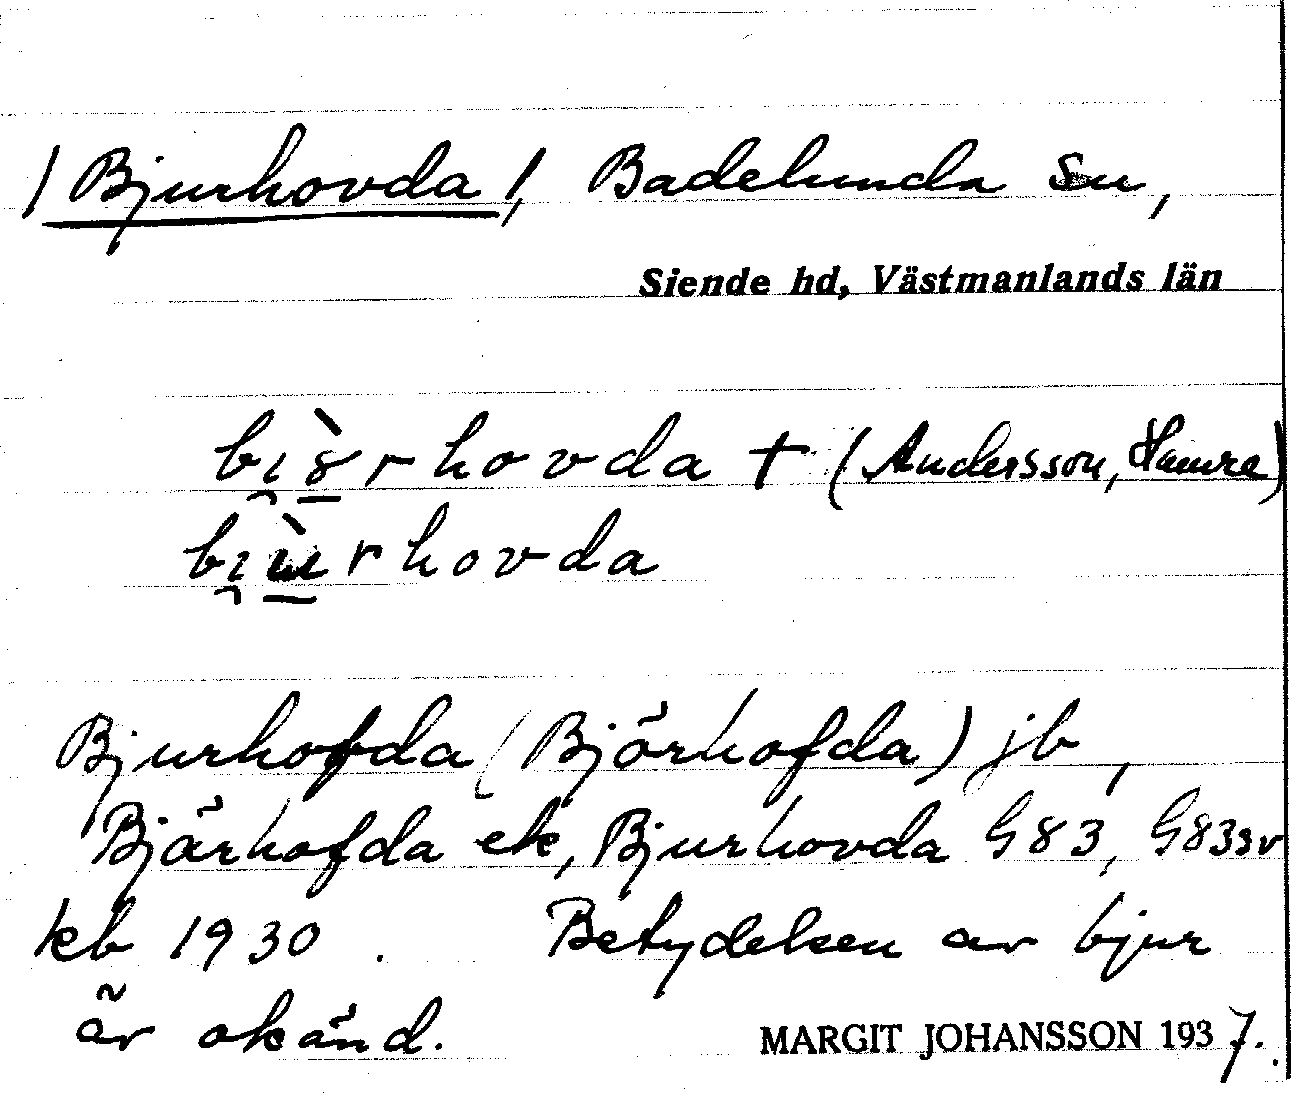 /Bjurhovda/, Badelunda sn,
Siende hd, Västmanlands län
hovda † (Andersson, Hamre)
hovda
Bjurhofda (Björhofda) jb,
Bjärhofda ek, Bjurhovda G83, G83sv
kb 1930. Betydelsen av bjur
är okänd.
MARGIT JOHANSSON 1937.